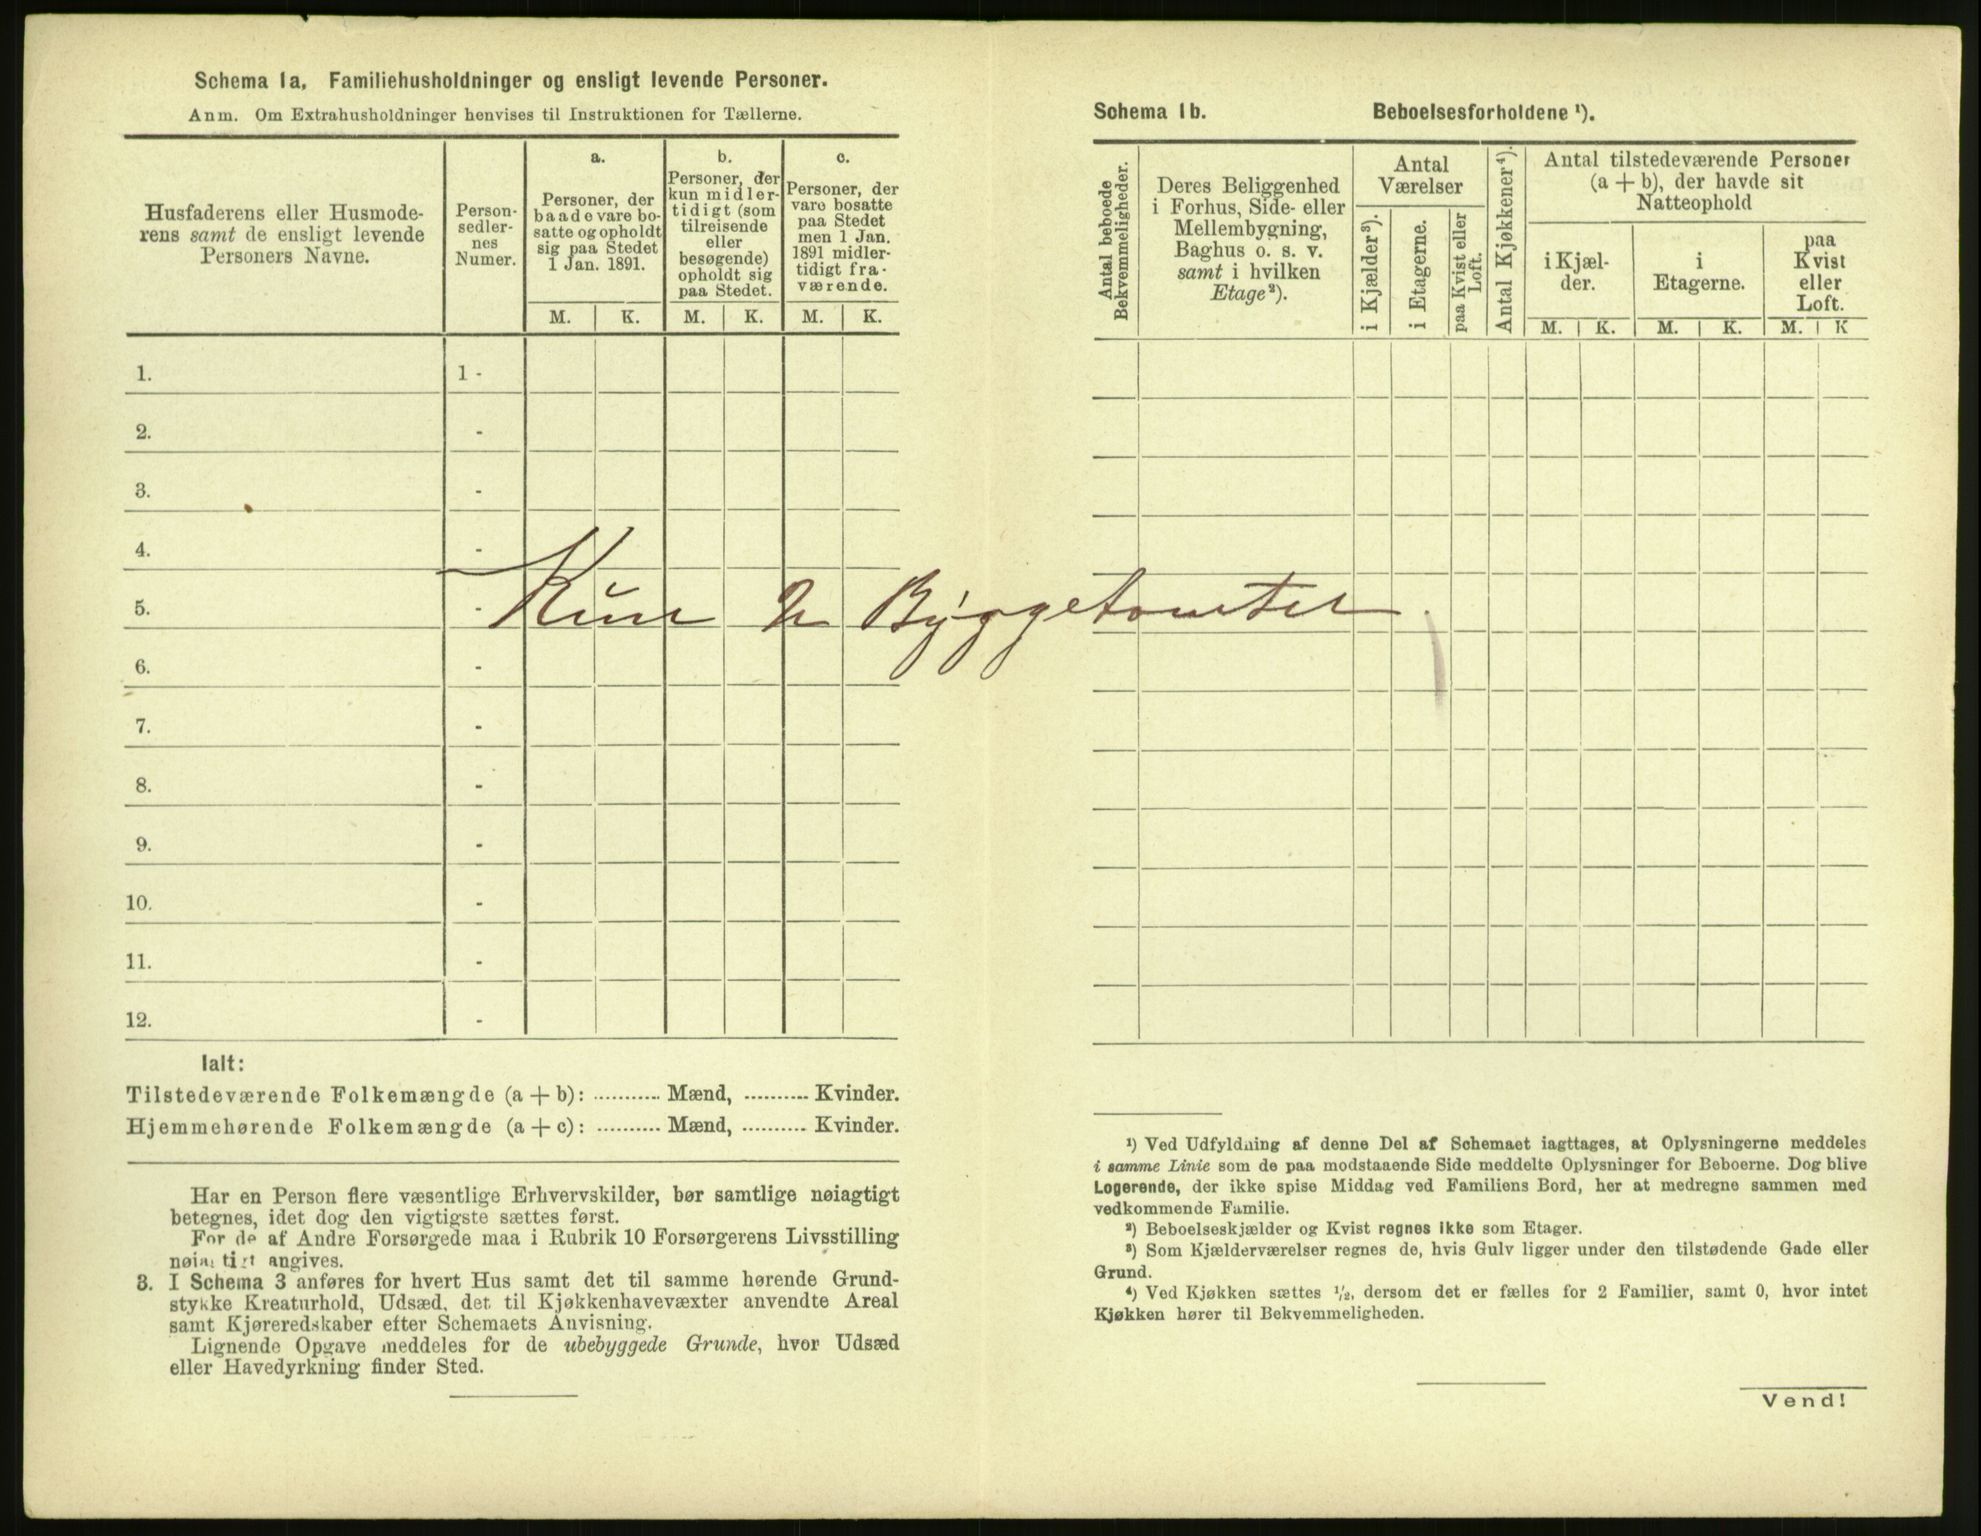 Schema 1a, Familiehusholdninger og ensligt levende Personer.
Anm. Om Extrahusholdninger henvises til Instruktionen for Tællerne.
Husfaderens eller Husmode-
rens samt de ensligt levende
Personers Navne.
Person-
sedler-
nes
Numer.
a.
Personer, der
baade vare bo-
satte og opholdt
sig paa Stedet
1 Jan. 1891.
b.
Personer, der
kun midler-
tidigt (som
tilreisende
eller
besøgende)
opholdt sig
paa Stedet.
c.
Personer, der
vare bosatte
paa Stedet
men 1 Jan.
1891 midler-
tidigt fra-
værende.
M. K. M. K. M. K.
1. 1 -
2. -
3. -
4. -
5. -
6. -
7. -
8. -
9. -
10. -
11. -
12. -
Kun 2 Byggetomter.
Ialt:
Tilstedeværende Folkemængde (a + b): ........... Mænd, ........... Kvinder.
Hjemmehørende Folkemængde (a + c): ........... Mænd, ........... Kvinder.
Har en Person flere væsentlige Erhvervskilder, bør samtlige nøiagtigt
betegnes, idet dog den vigtigste sættes først.
For de af Andre Forsørgede maa i Rubrik 10 Forsørgerens Livsstilling
nøiagtigt angives.
3. I Schema 3 anføres for hvert Hus samt det til samme hørende Grund-
stykke Kreaturhold, Udsæd, det til Kjøkkenhavevæxter anvendte Areal
samt Kjøreredskaber efter Schemaets Anvisning.
Lignende Opgave meddeles for de ubebyggede Grunde, hvor Udsæd
eller Havedyrkning finder Sted.
Schema 1b. Beboelsesforholdene ¹).
Antal beboede
Bekvemmeligheder.
Deres Beliggenhed
i Forhus, Side- eller
Mellembygning,
Baghus o. s. v.
samt i hvilken
Etage²).
Antal
Værelser
i Kjælder³).
i Etagerne.
paa Kvist eller
Loft.
Antal Kjøkkener⁴).
Antal tilstedeværende Personer
(a + b), der havde sit
Natteophold
i Kjæl-
der.
i
Etagerne.
paa
Kvist
eller
Loft.
M. K. M. K. M. K
¹) Ved Udfyldning af denne Del af Schemaet iagttages, at Oplysningerne meddeles
i samme Linie som de paa modstaaende Side meddelte Oplysninger for Beboerne. Dog blive
Logerende, der ikke spise Middag ved Familiens Bord, her at medregne sammen med
vedkommende Familie.
²) Beboelseskjælder og Kvist regnes ikke som Etager.
³) Som Kjælderværelser regnes de, hvis Gulv ligger under den tilstødende Gade eller
Grund.
⁴) Ved Kjøkken sættes ½, dersom det er fælles for 2 Familier, samt 0, hvor intet
Kjøkken hører til Bekvemmeligheden.
Vend!